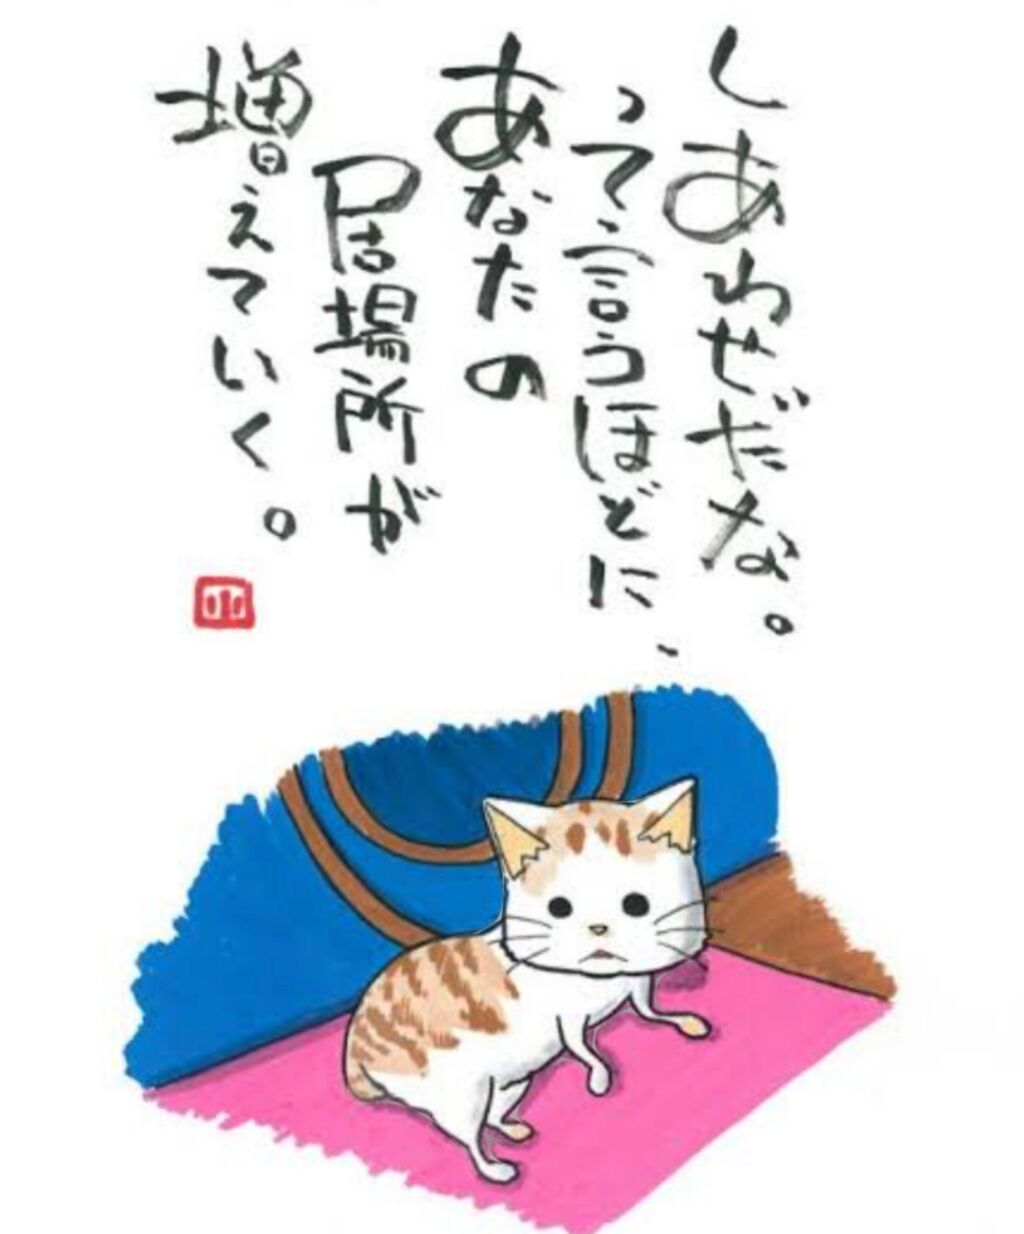 しあわせだな。
って言うほどに、
あなたの
居場所が
増えていく。